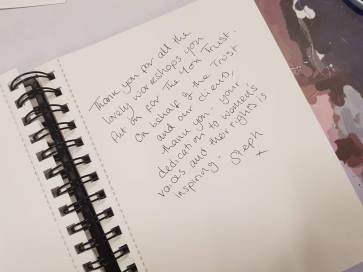 Thank you for all the
lovely workshops you
Put on for The You Trust.
On behalf of the Trust
and our clients,
thank you - your
dedication to women's
voices and their rights is
inspiring.
Steph
x